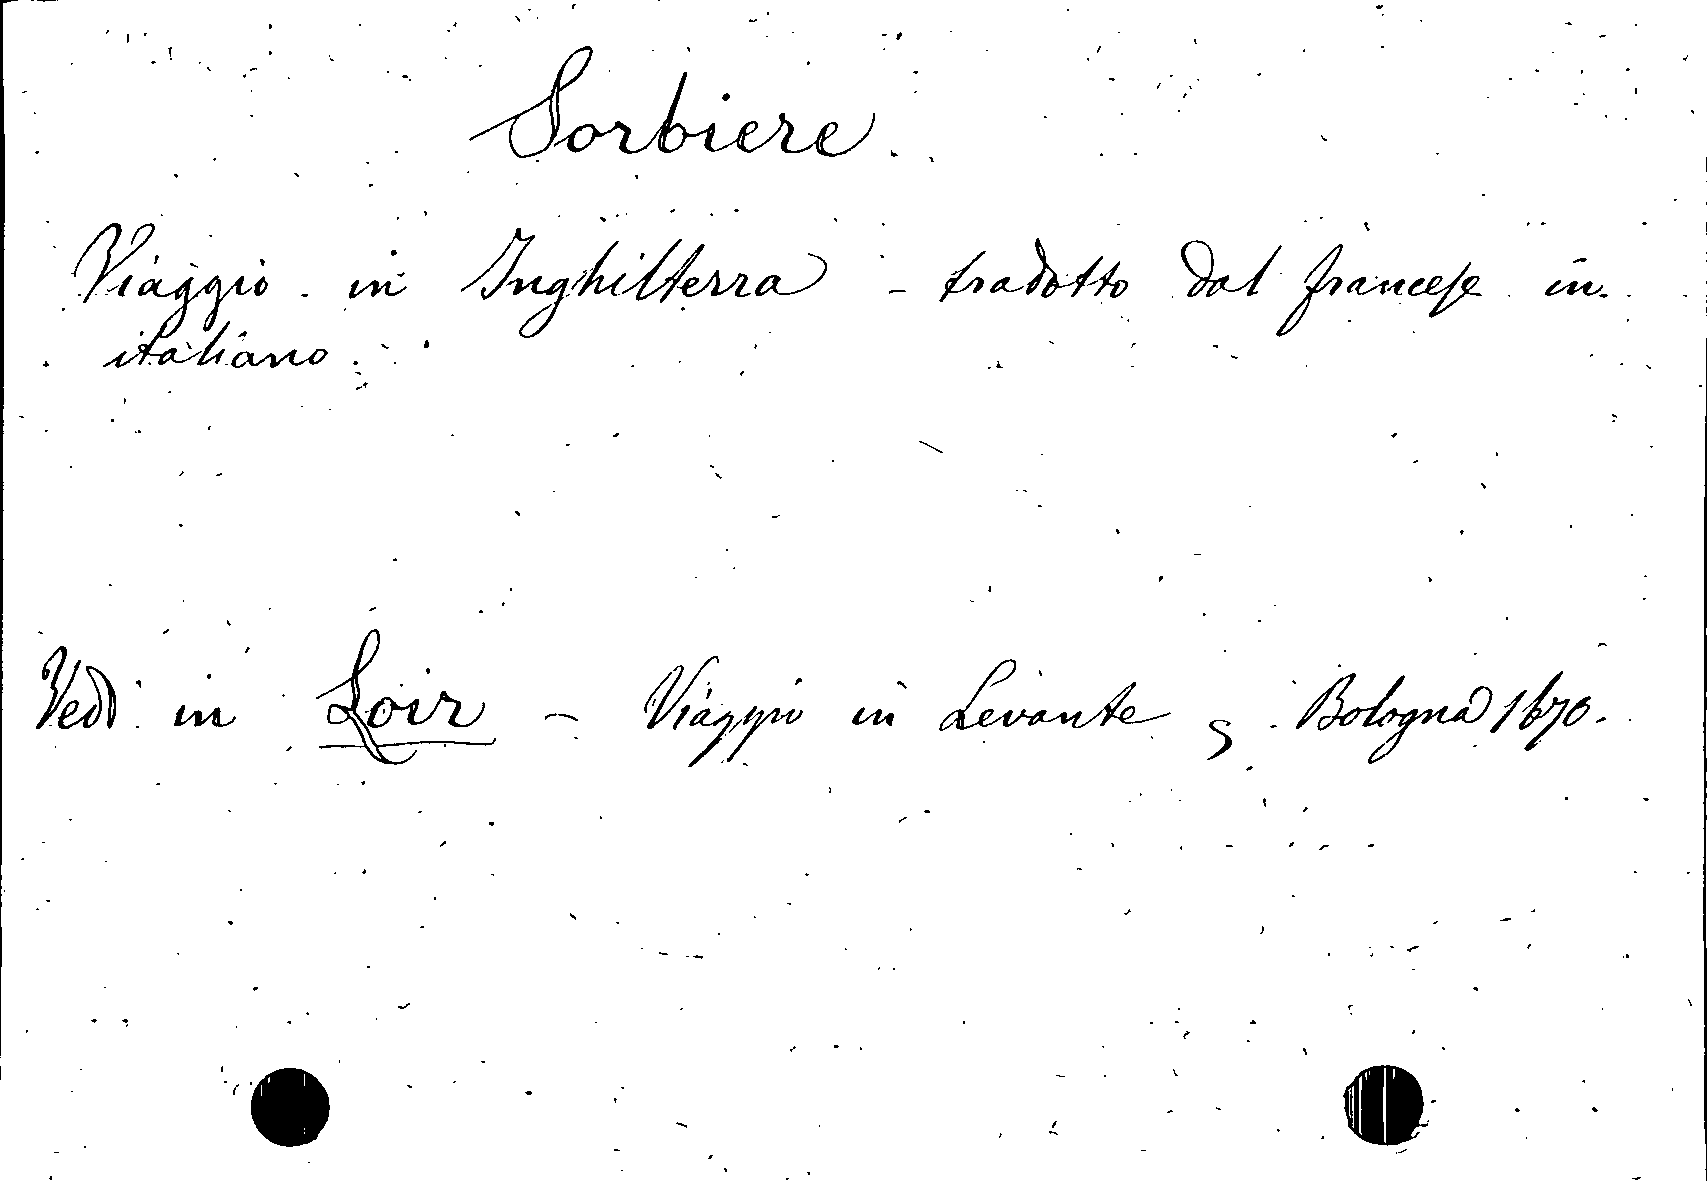 Sorbiere
Viaggio in Inghilterra - tradotto dal francese in
italiano.
Vedi in Loir - Viaggio in Levante, Bologna 1670.